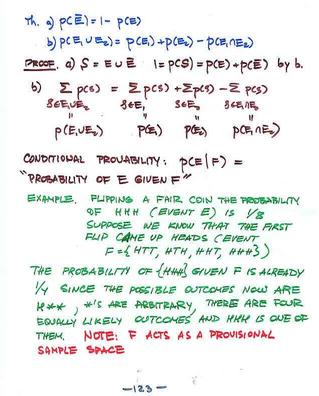 Th. a) p(E̅) = 1 - p(E)
b) p(E₁∪E₂) = p(E₁) + p(E₂) - p(E₁∩E₂)
PROOF. a) S = E∪E̅ 1 = p(S) = p(E) + p(E̅) by b.
b) Σ p(s) = Σ p(s) + Σ p(s) - Σ p(s)
s∈E₁∪E₂ s∈E₁ s∈E₂ s∈E₁∩E₂
" " " "
p(E₁∪E₂) p(E₁) p(E₂) p(E₁∩E₂)
CONDITIONAL PROBABILITY: p(E|F) =
"PROBABILITY OF E GIVEN F"
EXAMPLE. FLIPPING A FAIR COIN THE PROBABILITY
OF HHH (EVENT E) IS 1/8
SUPPOSE WE KNOW THAT THE FIRST
FLIP CAME UP HEADS (EVENT
F = {HTT, HTH, HHT, HHH})
THE PROBABILITY OF {HHH} GIVEN F IS ALREADY
1/4 SINCE THE POSSIBLE OUTCOMES NOW ARE
H**, *'S ARE ARBITRARY, THERE ARE FOUR
EQUALLY LIKELY OUTCOMES AND HHH IS ONE OF
THEM. NOTE: F ACTS AS A PROVISIONAL
SAMPLE SPACE
-123-